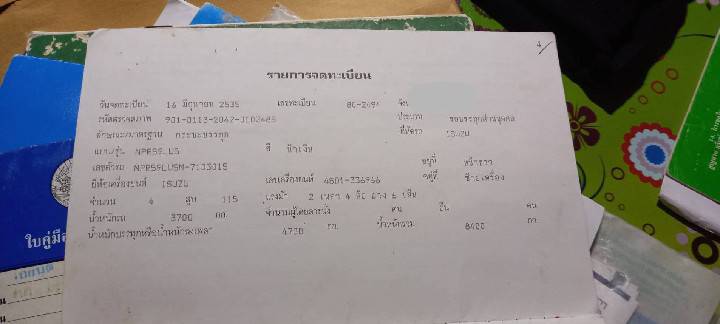 4
รายการจดทะเบียน
วันจดทะเบียน 16 มิถุนายน 2535 เลขทะเบียน 80-2494 จังหวัด
รหัสตรวจสภาพ 901-0113-2042-J102485 ประเภท รถบรรทุกส่วนบุคคล
ลักษณะ/มาตรฐาน กระบะบรรทุก ยี่ห้อรถ ISUZU
แบบ/รุ่น NPR59LUS สี น้ำเงิน
เลขตัวรถ NPR59LUSM-7103015 อยู่ที่ หน้าขวา
ยี่ห้อเครื่องยนต์ ISUZU เลขเครื่องยนต์ 4BD1-336966 อยู่ที่ ซ้ายเครื่อง
จำนวน 4 สูบ 115 แรงม้า 2 เพลา 4 ล้อ ยาง 6 เส้น
น้ำหนักรถ 3700 กก. จำนวนผู้โดยสารนั่ง คน ยืน คน
น้ำหนักบรรทุกหรือน้ำหนักลงเพลา 4700 กก. น้ำหนักรวม 8400 กก.
ใบคู่มือ